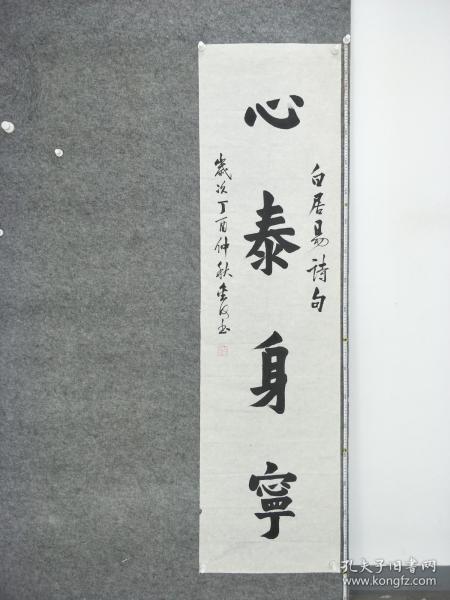 白居易詩句
心泰身寧
歲次丁酉仲秋金河书
孔夫子旧书网
www.kongfz.com